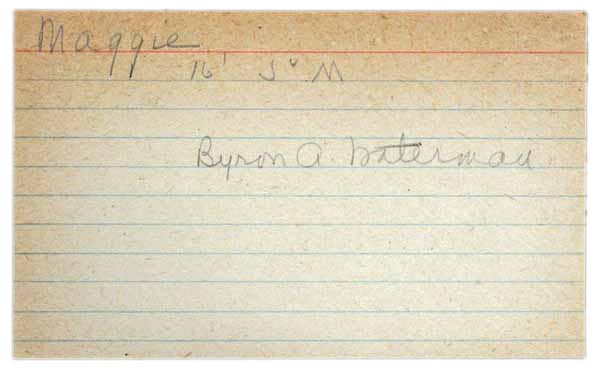 Maggie
16' J " M
Byron A. Waterman